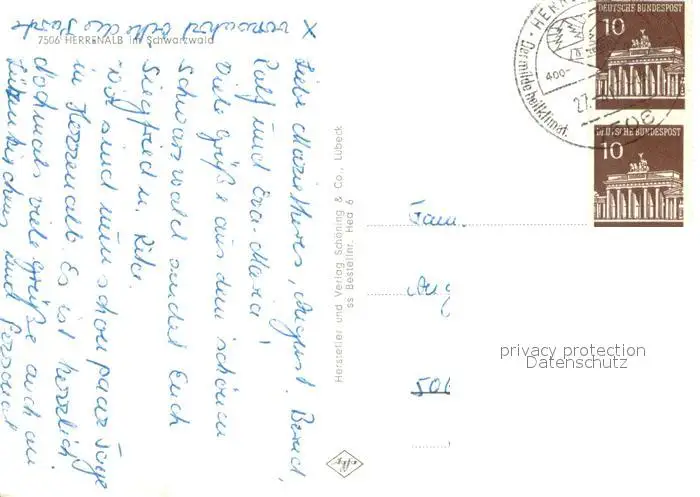 x vermachst bitte die Karte
7506 HERRENALB im Schwarzwald
Liebe Marietheres, August, Bernd,
Ralf und Eva-Maria!
Viele Grüße aus dem schönen
Schwarzwald sendet Euch
Siegfried u. Rita.
Wir sind nun schon paar Tage
in Herrenalb. Es ist herrlich
Nochmals viele Grüße auch an
und
Hersteller und Verlag Schöning & Co., Lübeck
ss Bestellnr. Hed 6
DEUTSCHE BUNDESPOST
10
DEUTSCHE BUNDESPOST
10
HERR
Der milde heilklimat.
400-
27.
506
Fam.
Aug
506
privacy protection
Datenschutz